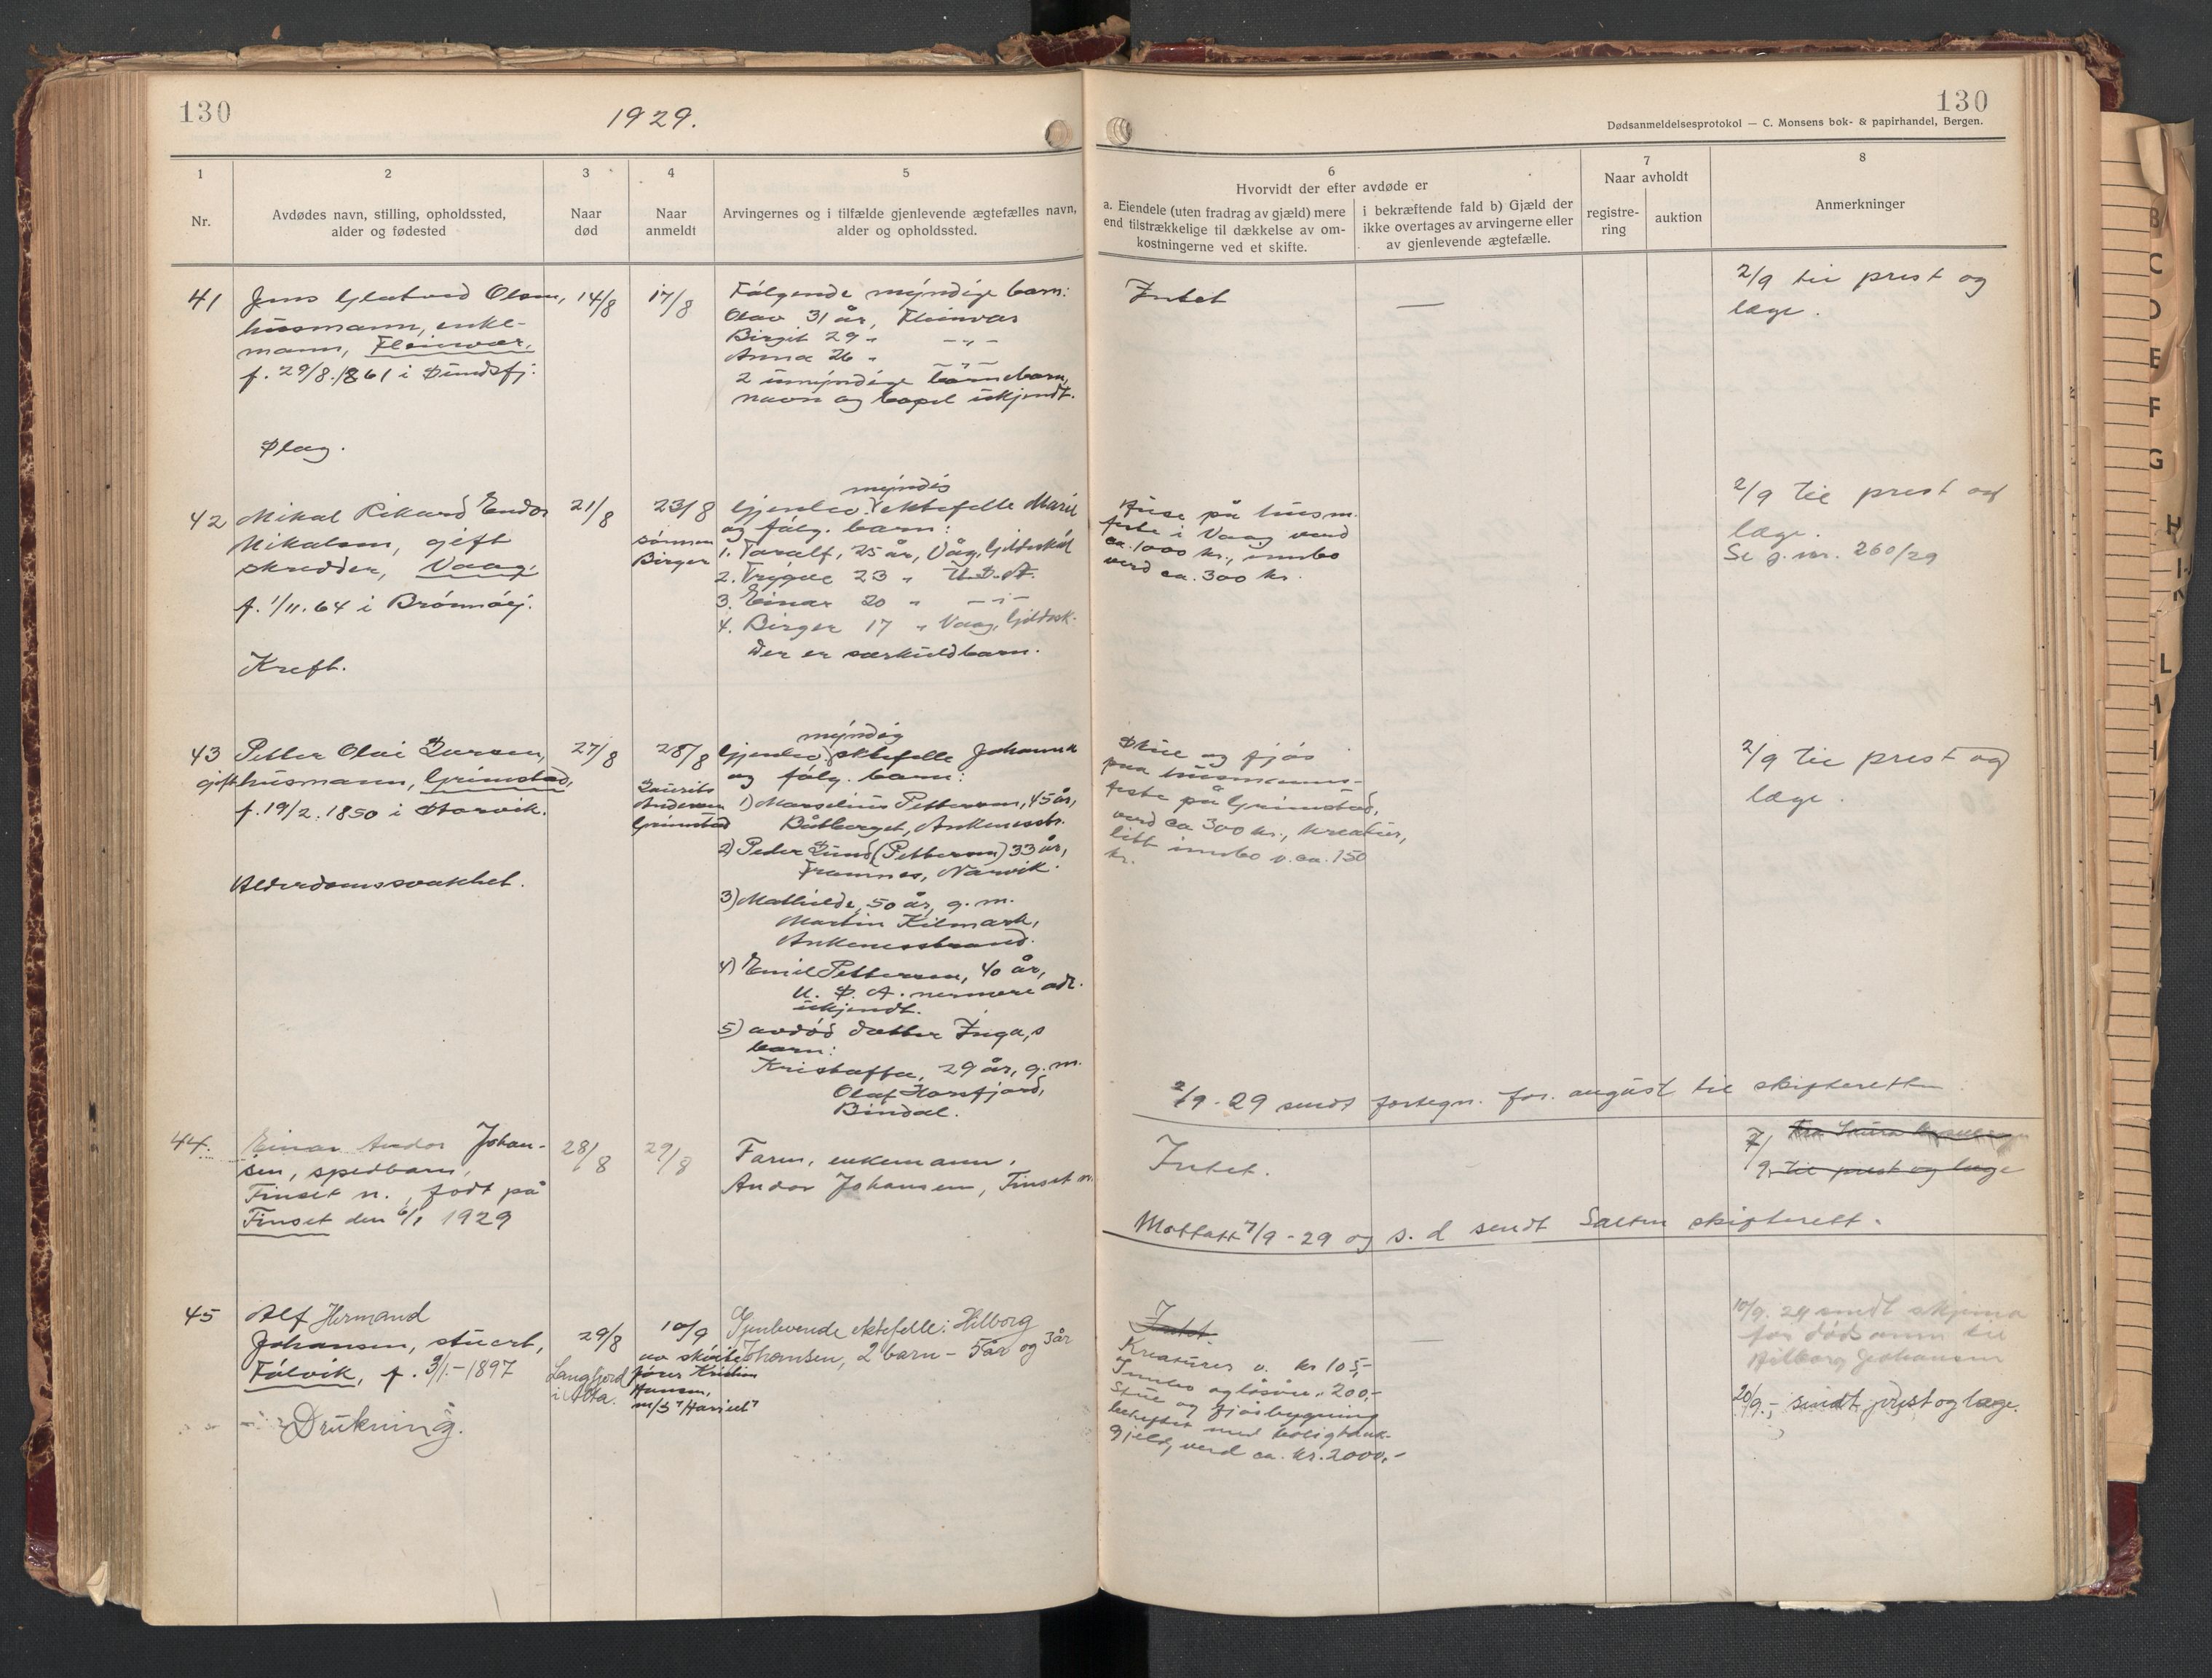 130
1929.
130
Dødsanmeldelsesprotokol — C. Monsens bok- & papirhandel, Bergen.
1
Nr.
2
Avdødes navn, stilling, opholdssted,
alder og fødested
3
Naar
død
4
Naar
anmeldt
5
Arvingernes og i tilfælde gjenlevende ægtefælles navn,
alder og opholdssted.
6
Hvorvidt der efter avdøde er
a. Eiendele (uten fradrag av gjæld) mere
end tilstrækkelige til dækkelse av om-
kostningerne ved et skifte.
i bekræftende fald b) Gjæld der
ikke overtages av arvingerne eller
av gjenlevende ægtefælle.
7
Naar avholdt
registre-
ring
auktion
8
Anmerkninger
41
Jens Olsen,
husmann, enke-
mann, Fleinvær,
f. 29/8.1861 i
Slag.
14/8
17/8
Følgende myndige barn:
Olav 31 år, Fleinvær
Birgit 29 " -"-
Anna 26 " -"-
2 umyndige barnebarn,
navn og bopel ukjendt.
Intet
—
2/9 til prest og
læge.
42
Mikal Rikard Endor
Mikalsen, gift
skredder, Vaag,
f. 1/11.64 i Brønnøy.
Kreft.
21/8
23/8
sønnen
Birger
myndig
Gjenlev. ektefelle Marie
og følg. barn:
1. Toralf, 25 år, Våg, Gildeskål
2. Trygve 23 " U.S.A.
3. Einar 20 " -"-
4. Birger 17 " Vaag, Gildesk.
Der er særkuldbarn.
Huse på husm.
feste i Vaag verd
ca. 1000 kr., innbo
verd ca. 300 kr.
2/9 til prest og
læge.
Se j.nr. 260/29
43
Petter Olai Larsen,
gift husmann, Grimstad,
f. 19/2.1850 i Storvik.
Alderdomssvakhet.
27/8
28/8
Laurits
Andersen
Grimstad
myndig
Gjenlev. ektefelle Johanna
og følg. barn:
1) Marselius Pettersen, 45 år,
Båtberget, Ankenesstr.
2) Peder Lund (Pettersen) 33 år,
Framnes, Narvik.
3) Mathilde, 50 år, g.m.
Martin Kilmark,
Ankenesstrand.
4) Emil Pettersen, 40 år,
U.S.A. nermere adr.
ukjendt.
5) avdød datter Inga,s
barn:
Kristoffa, 29 år, g.m.
Olaf Horsfjord,
Bindal.
Stue og fjøs
paa husmanns-
feste på Grimstad,
verd ca 300 kr., kreatur,
litt innbo v. ca. 150
kr.
2/9 til prest og
læge.
2/9-29 sendt fortegn. for august til skifteretten
44.
Einar Andor Johan-
sen, spedbarn,
Finset n., født på
Finset den 6/1 1929
28/8
29/8
Faren, enkemann,
Andor Johansen, Finset n.
Intet.
7/9 til prest og læge
Mottatt 7/9-29 og s. d sendt Salten skifterett.
45
Alf Hermand
Johansen, stuert,
Følvik, f. 3/1-1897
Drukning.
29/8
Langfjord
i Alta.
10/9
av skøite-
fører Kristian
Hansen,
m/s "Harriet"
Gjenlevende ektefelle: Hilborg
Johansen, 2 barn - 5år og 3år
Intet.
Kreaturer v. kr 105,-
Innbo og løsøre " 200,-
Stue og fjøsbygning
beheftet med boligbank-
gjeld, verd ca. kr. 2000,-
—
10/9. 29 sendt skjema
for dødsanm til
Hilborg Johansen
20/9.- sendt prest og læge.
B
C
D
E
F
G
H
L